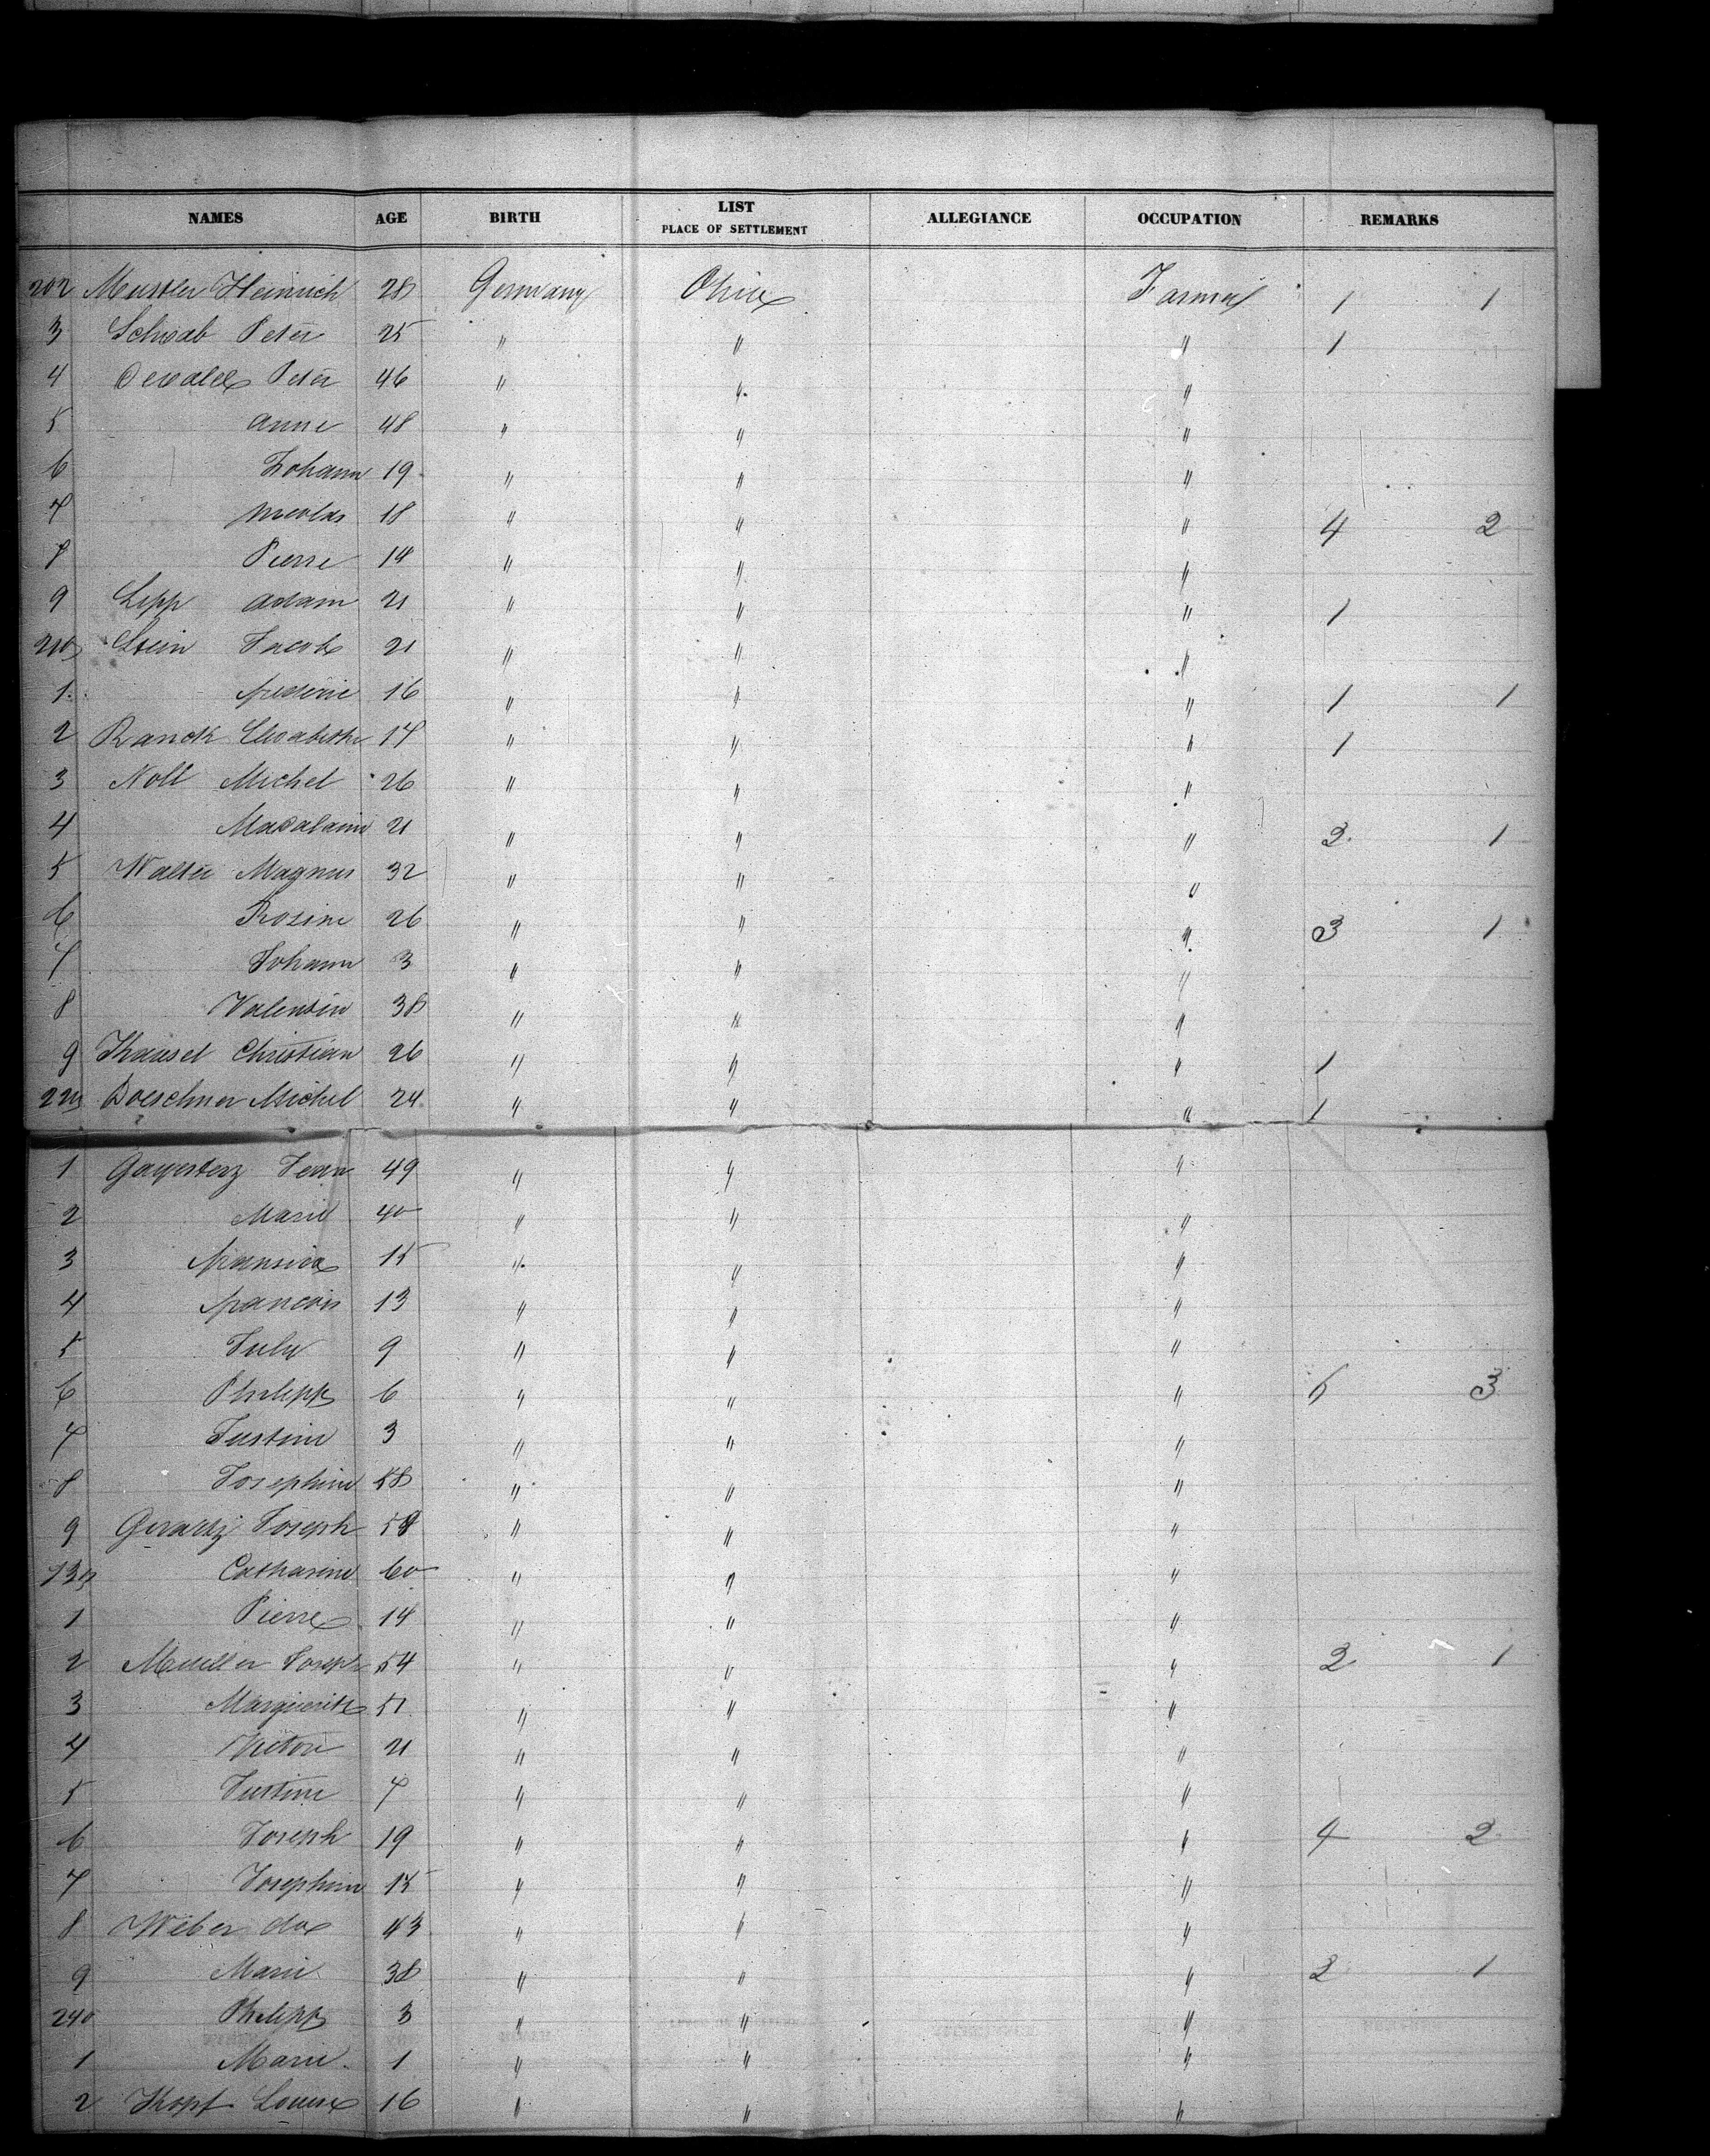 NAMES AGE BIRTH LIST PLACE OF SETTLEMENT ALLEGIANCE OCCUPATION REMARKS
202 Heinrich 28 Germany Ohio Farmer 1 1
3 Schwab Peter 25 " " " 1
4 Peter 46 " " "
5 Anne 48 " " "
6 Johann 19 " " "
7 Nicolas 18 " " " 4 2
8 Pierre 14 " " "
9 Lepp Adam 21 " " " 1
210 Stein Jacob 21 " " "
1 frederic 16 " " " 1 1
2 Ranck Elisabethe 17 " " " 1
3 Noll Michel 26 " " "
4 Madalaine 21 " " " 2 1
5 Walter Magnus 32 " " "
6 Rosine 26 " " " 3 1
7 Johann 3 " " "
8 Valentin 38 " " "
9 Christian 26 " " " 1
220 Doeschner Michel 24 " " " 1
1 Jean 49 " " "
2 Marie 40 " " "
3 15 " " "
4 francois 13 " " "
5 July 9 " " "
6 Philipp 6 " " " 6 3
7 Justine 3 " " "
8 Josephine 58 " " "
9 Joseph " " "
230 Catharine 60 " " "
1 Pierre 14 " " "
2 Mueller Joseph 54 " " " 2 1
3 Marguerite 51 " " "
4 Victor 21 " " "
5 Justine 7 " " "
6 Joseph 19 " " " 4 2
7 Josephine 15 " " "
8 Weber 43 " " "
9 Marie 38 " " " 2 1
240 Philipp 3 " " "
1 Marie 1 " " "
2 Kopf Louise 16 " " "